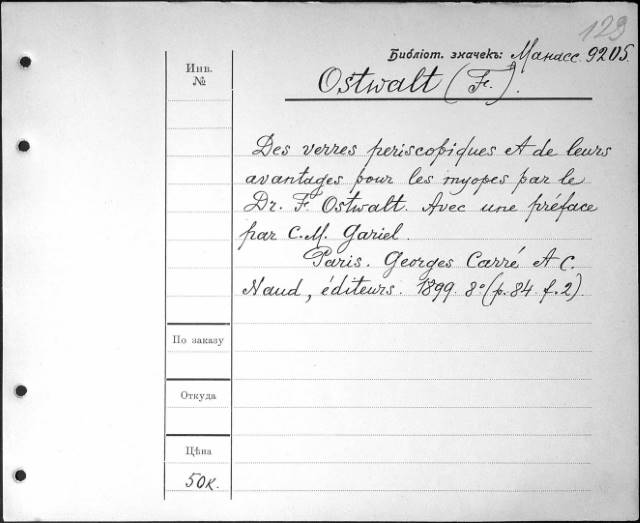 123
Библіот. значекъ: Манасс. 9205.
Инв.
№
Ostwalt (Fr.).
Des verres periscopiques et de leurs
avantages pour les myopes par le
Dr. F. Ostwalt. Avec une préface
par C.M. Gariel.
Paris. Georges Carré et C.
Naud, éditeurs. 1899. 8º (p. 84. f. 2).
По заказу
Откуда
Цѣна
50к.